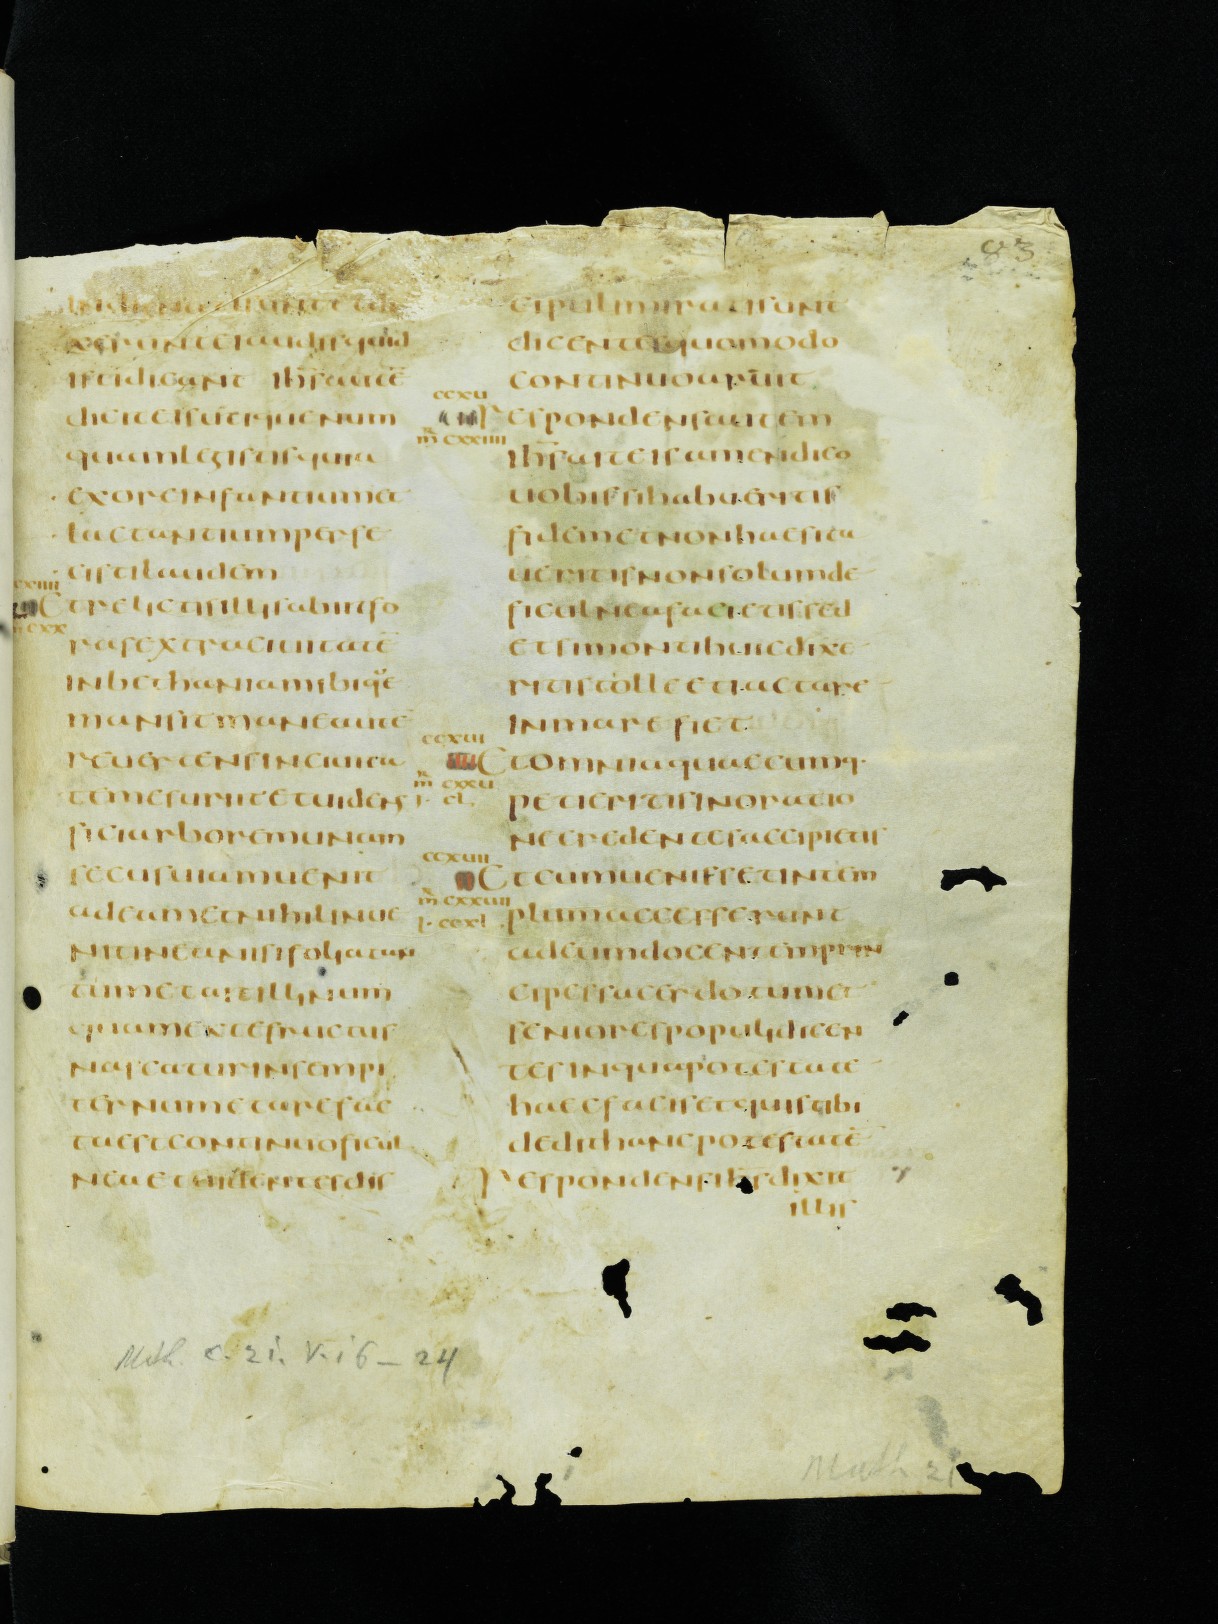 83
xerunt ei audis quid
isti dicant ihs autē
dicit eis utique num
quam legistis quia
ex ore infantium et
lactantium perfe
cisti laudem
cxiiii
Et relictis illis abiit fo
m cxx
ras extra ciuitatē
in bethaniam ibiq·e
mansit mane autē
reuertens in ciuita
tem esuriit et uidens
fici arborem unam
secus uiam uenit
ad eam et nihil inue
nit in ea nisi folia tan
tum et ait illi num
quam ex te fructus
nascatur in sempi
ternum et arefac
ta est continuo ficul
nea et uidentes dis
cipuli mirati sunt
dicentes quomodo
continuo aruit
ccxu
Respondens autem
m cxxiiii
ihs ait eis amen dico
uobis si habueritis
fidem et non haesita
ueritis non solum de
ficulnea facietis sed
et si monti huic dixe
ritis tolle et iacta re
in mare fiet
ccxui
Et omnia quaecumq·
m cxxu
petieritis in oratio
i· cl
ne credentes accipietis
ccxuii
Et cum uenisset in tem
m cxxuii
plum accesserunt
l· ccxl
ad eum docentem prin
cipes sacerdotum et
seniores populi dicen
tes in qua potestate
haec facis et quis tibi
dedit hanc potestatē
Respondens ihs dixit
illis
Math. c. 21. V. 16 – 24
Math 21